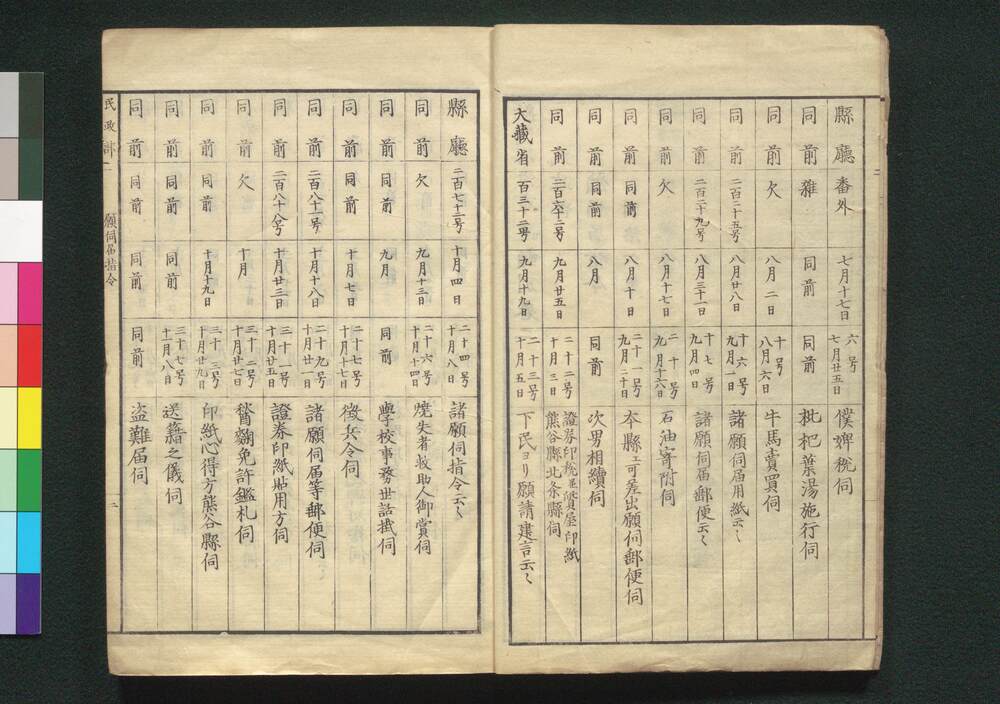 縣廳 番外 七月十七日 六号 七月廿五日 僕婢税伺
同前 雑 同前 同前 枇杷葉湯施行伺
同前 欠 八月二日 十号 八月六日 牛馬賣買伺
同前 二百二十五号 八月廿八日 十六号 九月一日 諸願伺届用紙云〻
同前 二百二十九号 八月三十一日 十七号 九月四日 諸願伺届郵便云〻
同前 欠 八月十七日 二十号 九月十六日 石油寄附伺
同前 同前 八月十日 二十一号 九月二十日 本縣ェ可差出願伺郵便伺
同前 同前 八月 同前 次男相續伺
同前 二百六十二号 九月廿五日 二十二号 十月二日 證券印税並質屋印紙熊谷縣北条縣伺
大藏省 百三十二号 九月十九日 二十三号 十月五日 下民ヨリ願請建言云〻
縣廳 二百七十二号 十月四日 二十四号 十月八日 諸願伺指令云〻
同前 欠 九月十三日 二十六号 十月十四日 燒失者救助人御賞伺
同前 同前 九月 同前 學校事務世話掛伺
同前 同前 十月七日 二十七号 十月十七日 徴兵令伺
同前 二百八十一号 十月十八日 二十九号 十月廿一日 諸願伺届等郵便伺
同前 二百八十八号 十月廿三日 三十一号 十月廿五日 證券印紙貼用方伺
同前 欠 十月 三十二号 十月廿七日 醤麹免許鑑札伺
同前 同前 十月十九日 三十三号 十月廿九日 印紙心得方熊谷縣伺
同前 同前 同前 三十七号 十一月八日 送籍之儀伺
同前 同前 同前 同前 盗難届伺
民政部 一 願伺届指令 二